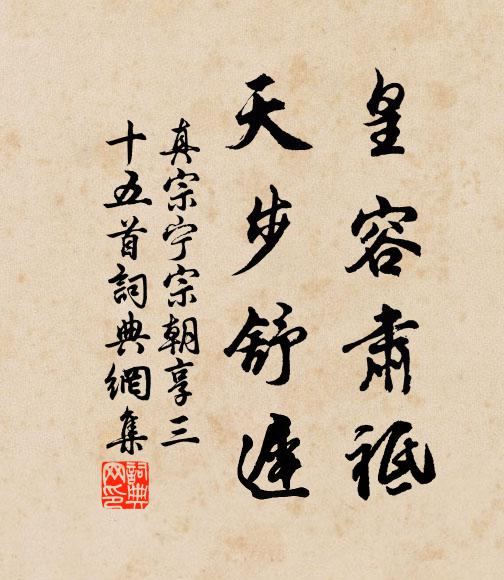 皇容肅祗
天步舒遲
真宗宁宗朝享三
十五首詞典網集
詞典
网印